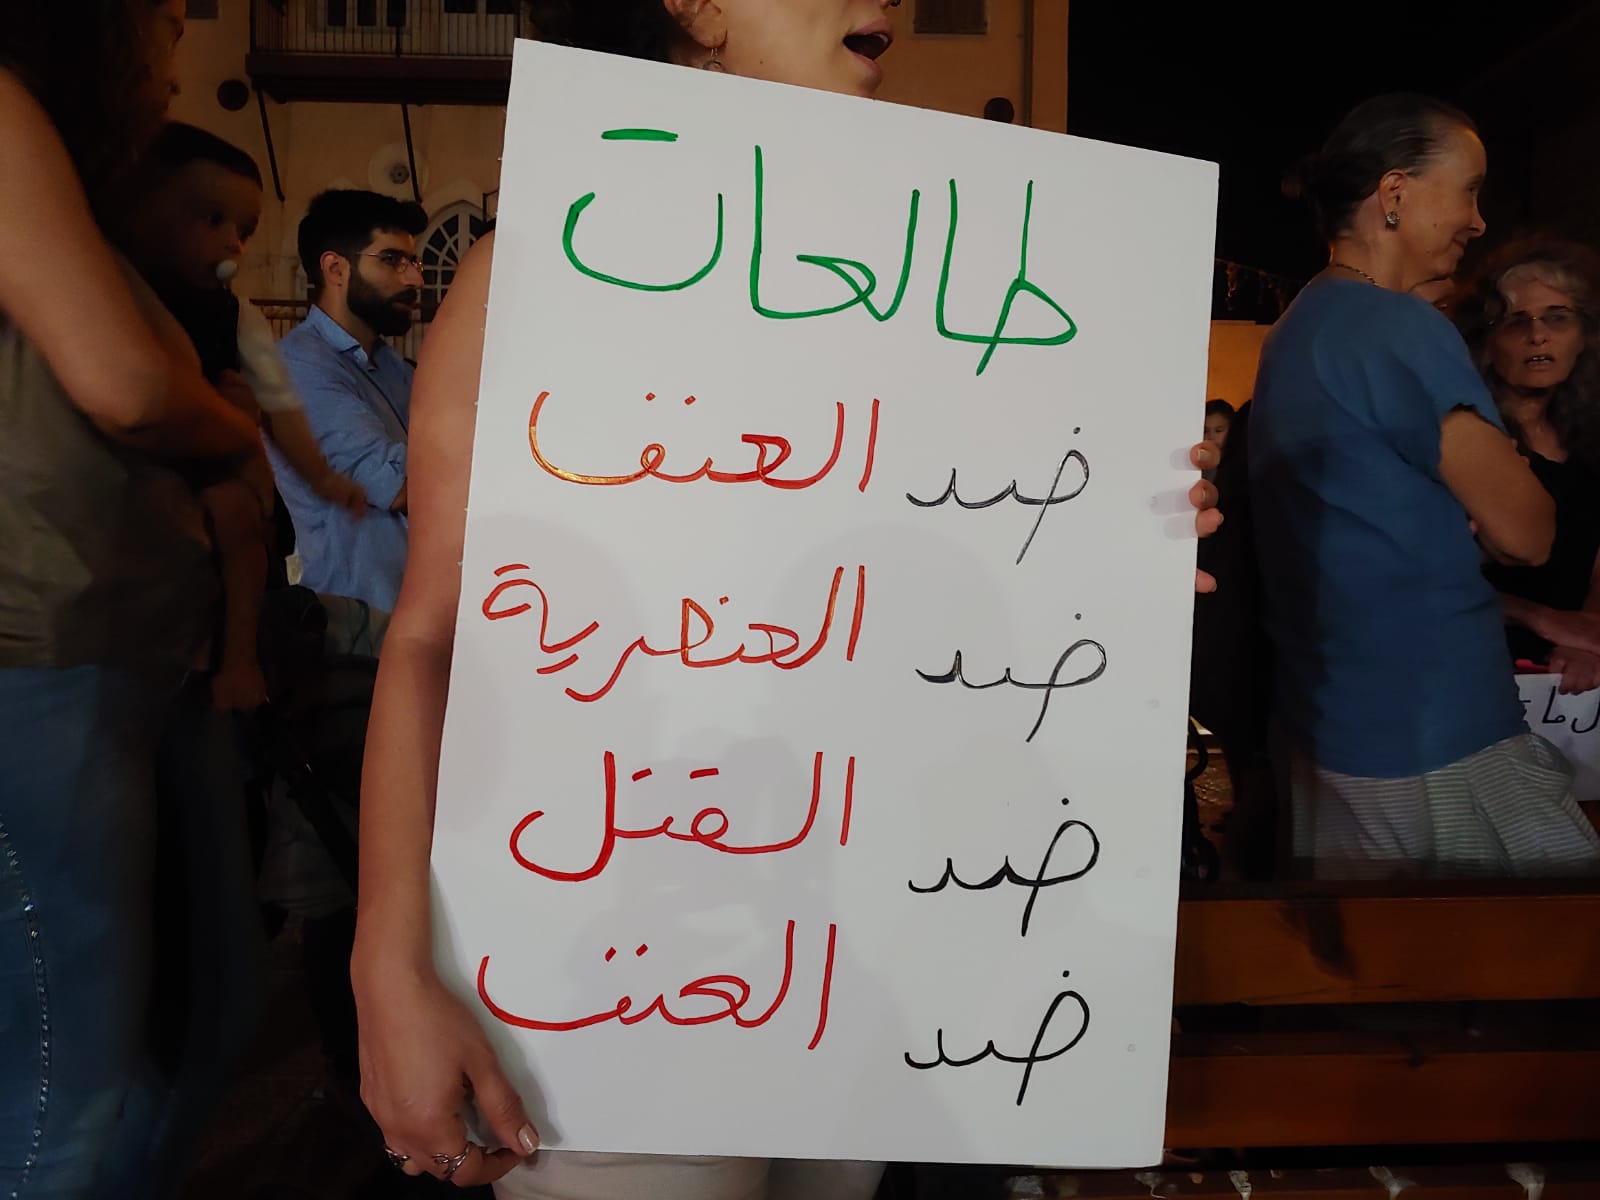 طالعات
ضد العنف
ضد العنصرية
ضد القتل
ضد العنف